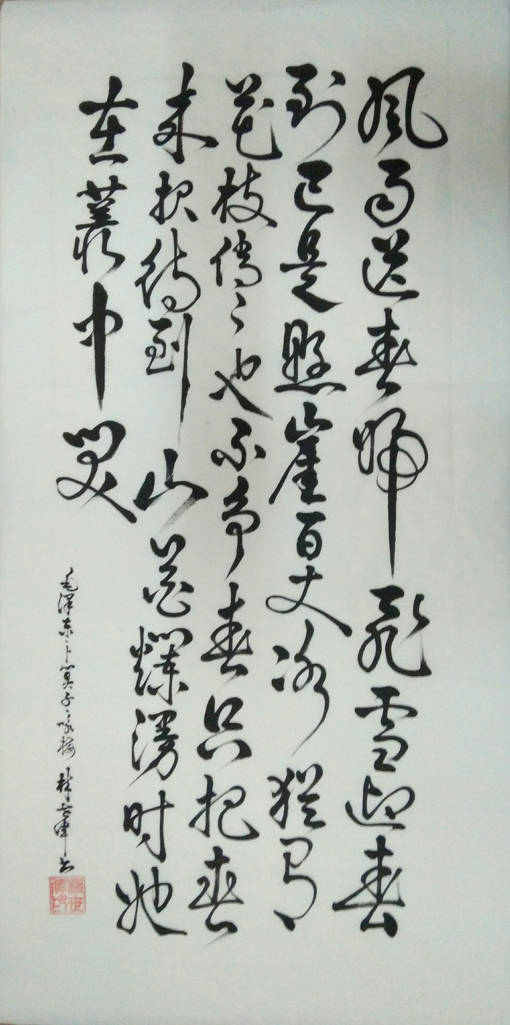 風雨送春歸飛雪迎春
到已是懸崖百丈冰猶有
花枝俏〻也不争春只把春
来报待到山花爛漫时她
在叢中笑
毛泽东卜算子咏梅